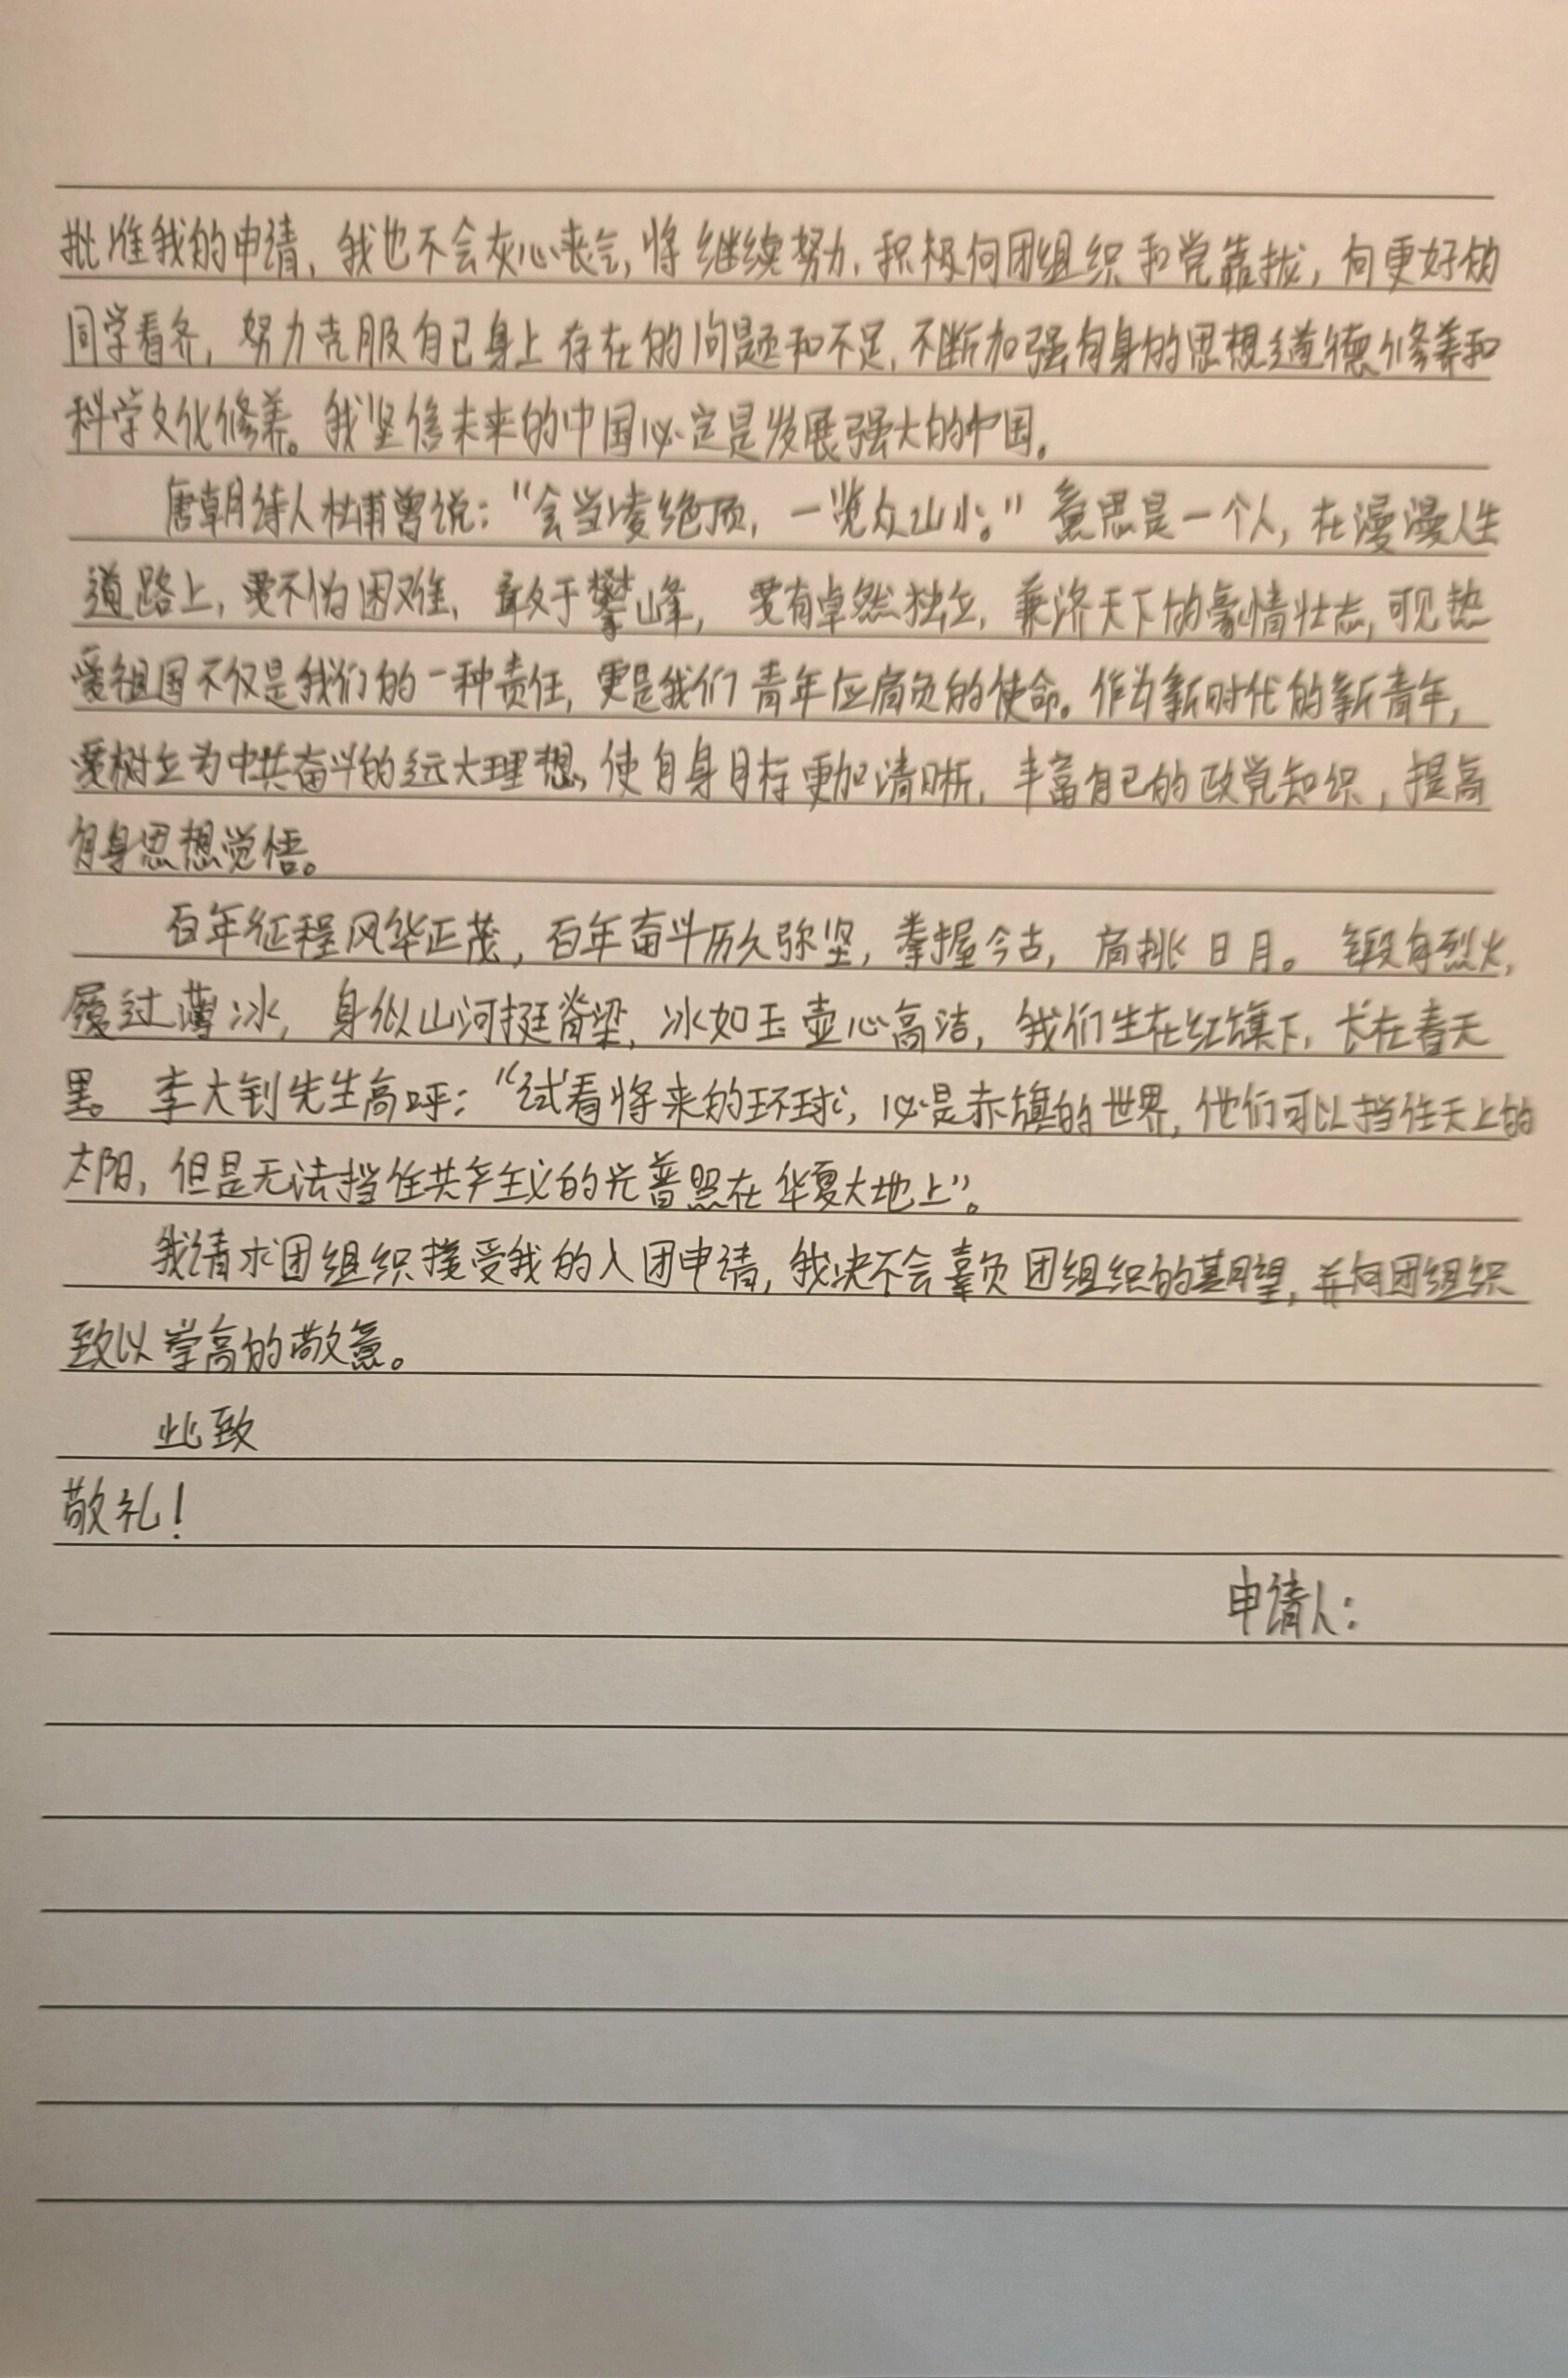 批准我的申请,我也不会灰心丧气,将继续努力,积极向团组织和党靠拢,向更好的
同学看齐,努力克服自己身上存在的问题和不足,不断加强自身的思想道德修养和
科学文化修养。我坚信未来的中国必定是发展强大的中国。
唐朝诗人杜甫曾说:“会当凌绝顶,一览众山小。”意思是一个人,在漫漫人生
道路上,要不怕困难,敢于攀峰,要有卓然独立,兼济天下的豪情壮志,可见热
爱祖国不仅是我们的一种责任,更是我们青年应肩负的使命。作为新时代的新青年,
要树立为中共奋斗的远大理想,使自身目标更加清晰,丰富自己的政党知识,提高
自身思想觉悟。
百年征程风华正茂,百年奋斗历久弥坚,拳握今古,肩挑日月。锻自烈火,
履过薄冰,身似山河挺脊梁,冰如玉壶心高洁,我们生在红旗下,长在春天
里。李大钊先生高呼:“试看将来的环球,必是赤旗的世界,他们可以挡住天上的
太阳,但是无法挡住共产主义的光普照在华夏大地上”。
我请求团组织接受我的入团申请,我决不会辜负团组织的期望,并向团组织
致以学高的敬意。
此致
敬礼!
申请人: